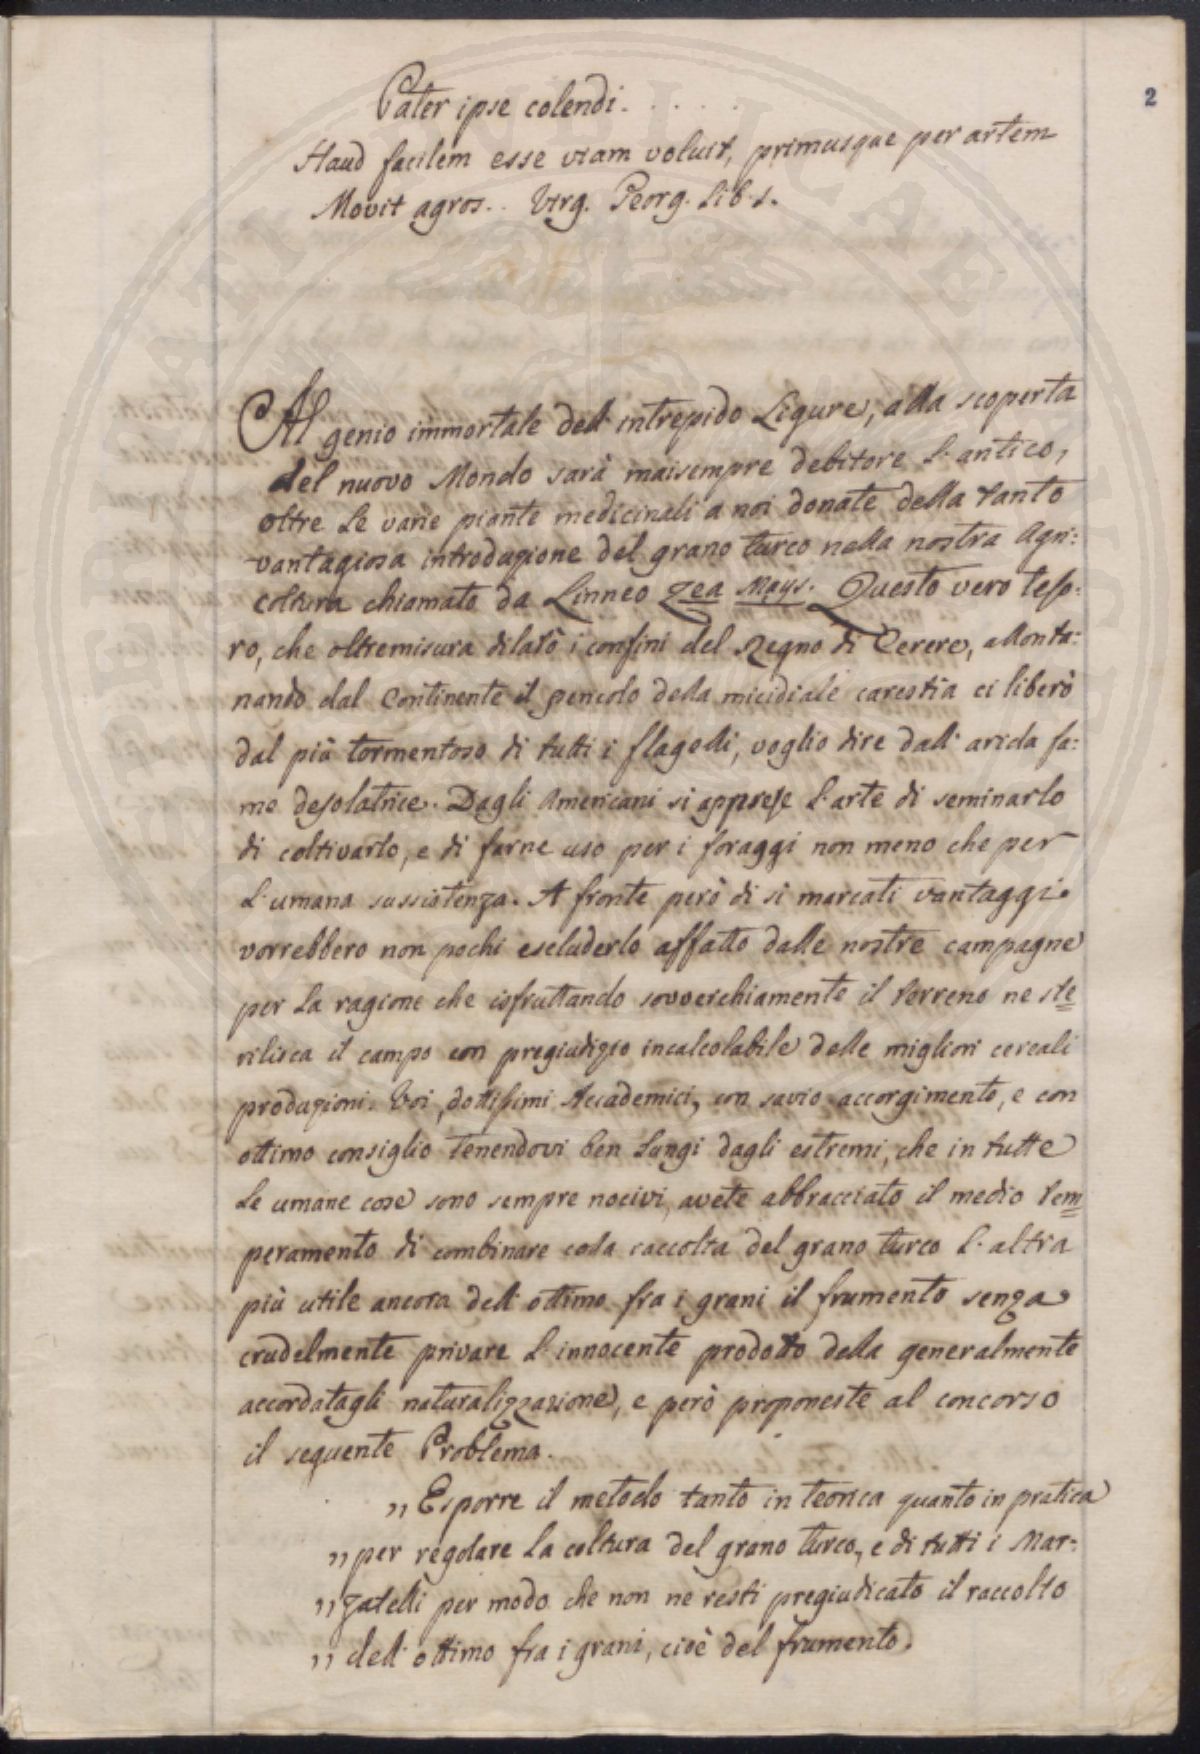 2
Pater ipse colendi. . . . . .
Haud facilem esse viam voluit, primusque per artem
Movit agros. . Virg. Georg. Lib. 1.
Al genio immortale dell' intrepido Ligure, alla scoperta
del nuovo Mondo sarà maisempre debitore l' antico,
oltre le varie piante medicinali a noi donate della tanto
vantagiosa introduzione del grano turco nella nostra Agri:
coltura chiamato da Linneo Zea Mays. Questo vero teso:
ro, che oltremisura dilatò i confini del Regno di Cerere, allonta:
nando dal Continente il pericolo della micidiale carestia ci liberò
dal più tormentoso di tutti i flagelli, voglio dire dall' arida fa:
me desolatrice. Dagli Americani si apprese l' arte di seminarlo
di coltivarlo, e di farne uso per i foraggi non meno che per
l' umana sussistenza. A fronte però di sì marcati vantaggi
vorrebbero non pochi escluderlo affatto dalle nostre campagne
per la ragione che isfruttando sovverchiamente il terreno ne ste
rilisca il campo con pregiudizio incalcolabile delle migliori cereali
produzioni. Voi, dottissimi Accademici, con savio accorgimento, e con
ottimo consiglio tenendovi ben lungi dagli estremi, che in tutte
le umane cose sono sempre nocivi, avete abbracciato il medio tem
peramento di combinare colla raccolta del grano turco l' altra
più utile ancora dell' ottimo fra i grani il frumento senza
crudelmente privare l' innocente prodotto della generalmente
accordatagli naturalizzazione, e però proponeste al concorso
il seguente Problema.
„ Esporre il metodo tanto in teorica quanto in pratica
„ per regolare la coltura del grano turco, e di tutti i Mar:
„ zatelli per modo che non ne resti pregiudicato il raccolto
„ dell' ottimo fra i grani, cioè del frumento.